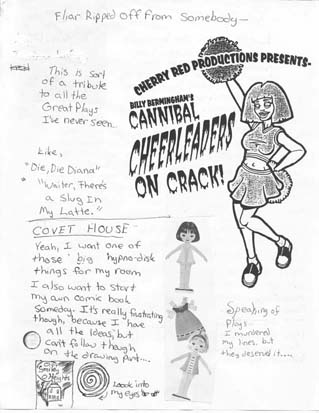 Fliar Ripped Off From Somebody—
This is sort
of a tribute
to all the
Great Plays
I've never seen..
Like,
"Die, Die Diana"
"Waiter, There's
a Slug In
My Latte."
CHERRY RED PRODUCTIONS PRESENTS-
BILLY BERMINGHAM'S
CANNIBAL
CHEERLEADERS
ON CRACK!
COVET HOUSE
Yeah, I want one of
those big hypno-disk
things for my room
I also want to start
my own comic book
Someday. It's really frustrating
though, because I have
all the ideas, but
Can't follow though
on the drawing part....
Look into
my Eyes
Speaking of
Plays...
I murdered
my lines, but
they deserved it.....